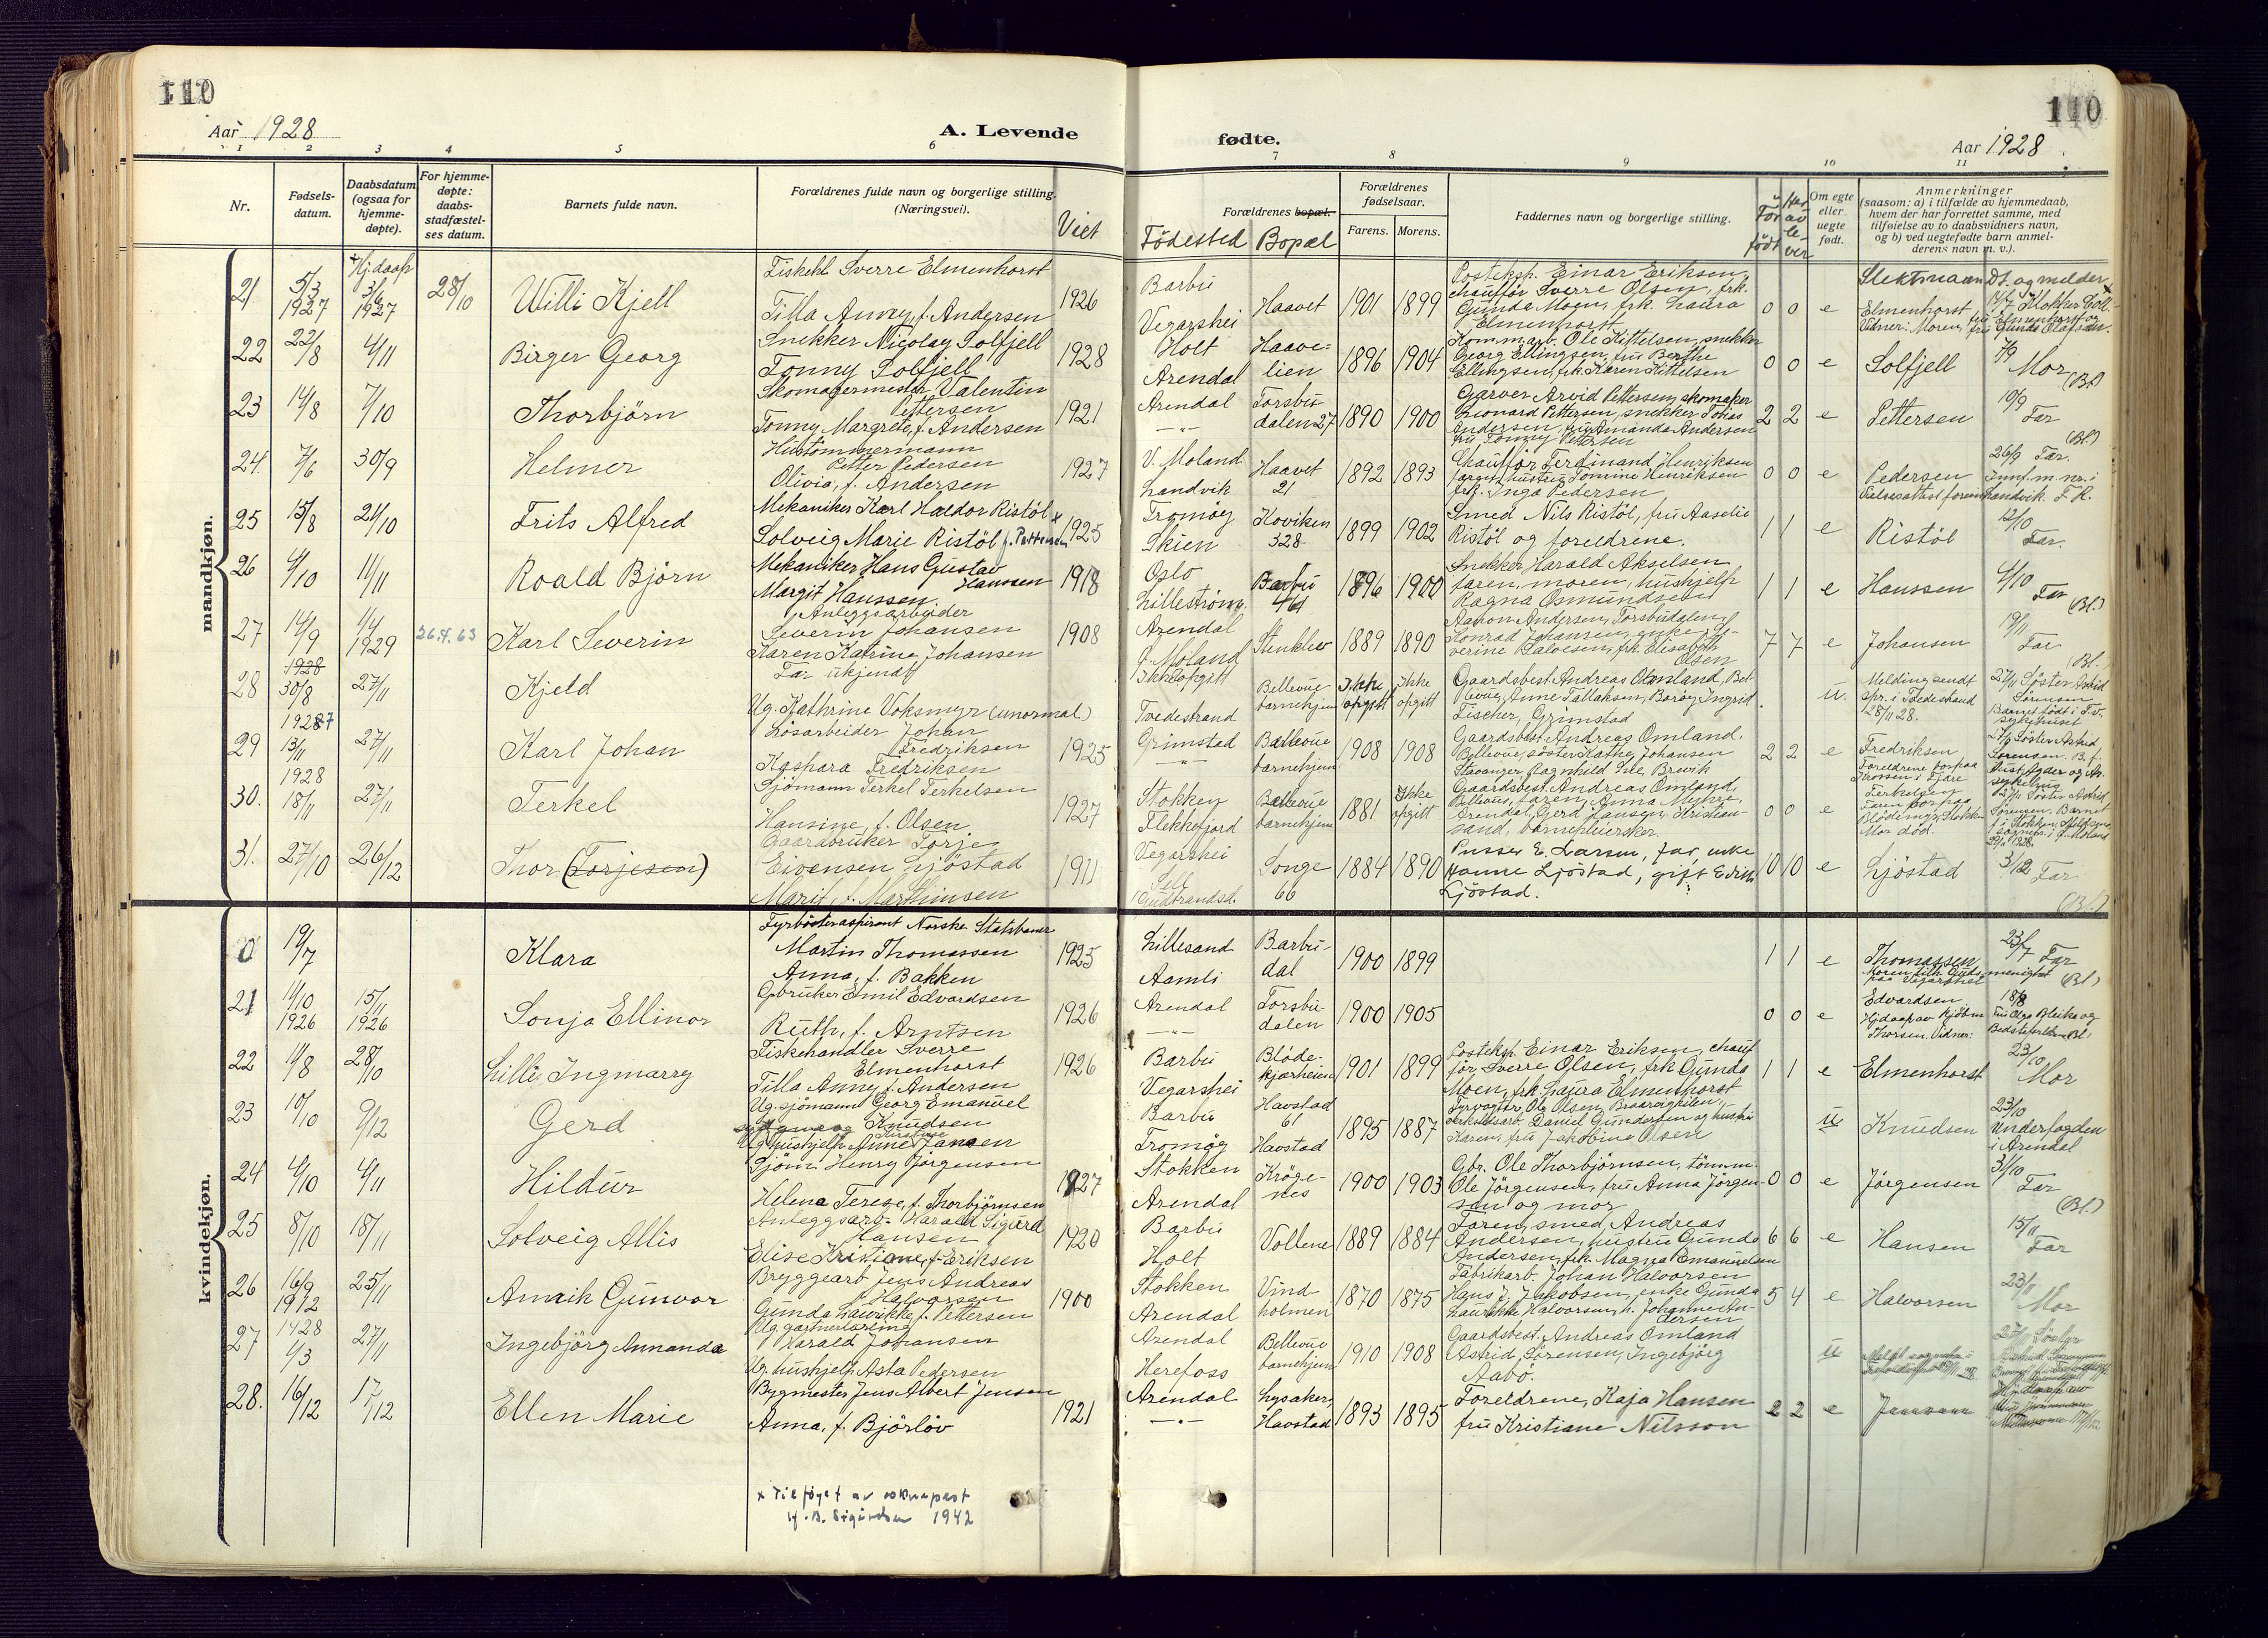 110
110
Aar 1928
A. Levende
fødte.
Aar 1928
1 2 3 4 5 6 7 8 9 10 11
Nr.
Fødsels-
datum.
Daabsdatum
(ogsaa for
hjemme-
døpte).
For hjemme-
døpte:
daabs-
stadfæstel-
ses datum.
Barnets fulde navn.
Forældrenes fulde navn og borgerlige stilling
(Næringsvei).
Viet
Forældrenes bopæl.
Födested Bopæl
Forældrenes
fødselsaar.
Farens. Morens.
Faddernes navn og borgerlige stilling.
Om egte
eller
uegte
født.
Anmerkninger
(saasom: a) i tilfælde av hjemmedaab,
hvem der har forrettet samme, med
tilføielse av to daabsvidners navn,
og b) ved uegtefødte barn anmel-
derens navn m. v.).
Slektsnavn Dt. og melder
mandkjøn.
21. 5/3 1927 Hjdaap 3/6 1927 28/10 Willi Kjell
Fiskehl Sverre Elmenhorst
Tilla Anny, f. Andersen
1926 Barbu Vegarshei Haavet 1901 1899
Posteksp. Einar Eriksen,
chaufför Sverre Olsen, frk.
Gunda Moen, frk. Laura
Elmenhorst
0 0 e Elmenhorst
22 22/8 4/11 Birger Georg
Snekker Nicolay Solfjell
Tonny Solfjell
1928 Holt Arendal Haave-
lien 1896 1904
Kommarb. Ole Kittelsen, snekker
Georg Ellingsen, fru Berthe
Ellingsen, frk. Karen Kittelsen
0 0 e Solfjell 7/9 Mor (Bl)
23 14/8 7/10 Thorbjörn
Skomagermester Valentin
Pettersen
Tonny Margrete, f. Andersen
1921 Arendal —"— Torsbu
dalen 27 1890 1900
Garver Arvid Pettersen, skomaker
Leonard Pettersen, snekker Tobias
Andersen, fru Amanda Andersen
fru Tonny Pettersen
2 2 e Pettersen 10/9 Far (Bl.)
24. 7/6 30/9 Helmer
Hustömmermann
Petter Pedersen
Olivia, f. Andersen
1927 V. Moland Landvik Haavet
21 1892 1893
Chaufför Ferdinand Henriksen
hustru Tomine Henriksen
frk. Inga Pedersen
0 0 e Pedersen 26/9 Far.
25 15/8 21/10 Frits Alfred
Mekaniker Karl Haldor Ristöl x
Solveig Marie Ristöl f. Pettersen
1925 Tromøy Skien Koviken
328 1899 1902
Smed Nils Ristöl, fru Aaselie
Ristöl og foreldrene.
1 1 e Ristöl 12/10 Far.
26 4/10 11/11 Roald Björn
Mekaniker Hans Gustav
Hanssen
Margit Hanssen
1918 Oslo Lilleström. Barbu
461 1896 1900
Snekker Harald Akselsen
faren, moren, hushjelp
Ragna Osmundsen
1 1 e Hanssen 4/10 Far (Bl.)
27 14/9 1/4 1929 26.4.63 Karl Severin
Anleggsarbeider
Severin Johansen
Karen Katrine Johansen
1908 Arendal Ö. Moland Stenklev 1889 1890
Aanon Andersen, Torsbudalen,
Konrad Johansen, enke Se-
verine Halvorsen, frk. Elisabeth
Olsen
7 7 e Johansen 19/11 Far (Bl.
28 1928 30/8 27/11 Kjeld
Far ukjendt
Ug. Kathrine Voksmyr (unormal)
Ikke opgitt Tvedestrand Bellevue
barnehjem Ikke
opgitt Ikke
opgitt
Gaardsbest. Andreas Omland, Bel-
levue, Anne Tallaksen, Barøy Ingrid
Fischer, Grimstad
u. Melding sendt
spr. i Tvedestrand
28/11 28.
27/11 Söster Astrid
Sörensen
Barnet födt i T.v.
sykehuset
29 1927 13/11 27/11 Karl Johan
Lösarbeider Johan
Fredriksen
Kaspara Fredriksen
1925 Grimstad —"— Bellevue
barnehjem 1908 1908
Gaardsbest. Andreas Omland,
Bellevue, söster Kathe Johansen
Stavanger Ragnhild Lie, Brevik
2 2 e Fredriksen
30. 1928 18/11 27/11 Terkel
Sjömann Terkel Terkelsen
Hansine, f. Olsen
1927 Stokken Flekkefjord Bellevue
barnehjem 1881 Ikke
opgitt
Gaardsbest. Andreas Omland,
Bellevue, faren, Anna Myhre,
Arendal, Gerd Jansen, Kristian-
sand, barnepleiersker.
0 0 e Terkelsen
Mor död.
31. 27/10 26/12 Thor (Torjesen)
Gaardbruker Torje
Eivensen Ljöstad
Marit, f. Marthinsen
1911 Vegarshei Sell
Gudbrandsd. Songe
66 1884 1890
Pusser E. Larsen, far, enke
Hanne Ljöstad, gift Edith
Ljöstad.
10 10 e Ljöstad 3/12 Far (Bl.)
kvindekjøn.
0 19/7 Klara
Fyrböteraspirant Norske Statsbaner
Martin Thomassen
Anna, f. Bakken
1925 Lillesand Aamli Barbu-
dal 1900 1899
1 1 e Thomassen 23/7 Far (Bl.)
21 11/10 1926 15/11 1926 Sonja Ellinor
Gbruker Emil Edvardsen
Ruth, f. Arntsen
1926 Arendal —"— Torsbu
dalen 1900 1905
0 0 e Edvardsen 18/8
22 11/8 28/10 Lilli, Ingmarry
Fiskehandler Sverre
Elmenhorst
Tilla Anny f. Andersen
1926 Barbu Vegarshei Blöde-
kjærheien 1901 1899
Posteksp. Einar Eriksen, chauf
för, Sverre Olsen, frk. Gunda
Moen, frk. Laura Elmenhorst
1 1 e Elmenhorst 23/10 Mor
23 10/10 9/12 Gerd
Ug. sjömann Georg Emanuel
Knudsen
Ug. hushjelp Anne Jansen
Barbu Tromöy Havstad
61
Havstad 1895 1887
Fyrvogter Ole Olsen,
verkstedsarb. Daniel Gundersen og hustru
Karen, fru Jakobine Olsen
u Knudsen 23/10
Underfogden
i Arendal
24 4/10 4/11 Hildur
Sjöm. Henry Jörgensen
Helena Terese, f. Thorbjörnsen
1927 Stokken Arendal Kröge-
nes 1900 1903
Gbr. Ole Thorbjörnsen, tömm.
Ole Jörgensen, fru Anna Jörgen-
sen og mor
0 0 e Jörgensen 31/10 Far (Bl.)
25 8/10 18/11 Solveig Allis
Anleggsarb. Harald Sigurd
Hansen
Elise Kristiane, f. Eriksen
1920 Barbu Holt Vollene 1889 1884
Faren, smed Andreas
Andersen, hustru Gunda
Andersen, frk. Magna Emanuelsen
6 6 e Hansen 15/11 Far
26 16/9 1912 25/11 Annik Gunvor
Bryggearb. Jens Andreas
Halvorsen
Gunda Laurikke f. Pettersen
1900 Stokken Arendal Vind-
holmen 1870 1875
Fabrikarb. Johan Halvorsen
Hans J. Jakobsen, enke Gunda
Laurikke Halvorsen, h. Johanne An-
dersen
5 4 e Halvorsen 23/11 Mor
27 1928 4/3 27/11 Ingebjörg Annanda
Ug. gartnerlærling
Harald Johansen
Ug. hushjelp Asta Pedersen
Arendal Herefoss Bellevue
barnehjem 1910 1908
Gaardsbest. Andreas Omland
Astrid Sörensen, Ingebjörg
Aabö.
u
28. 16/12 17/12 Ellen Marie
Bygmester Jens Albert Jensen
Anna, f. Björlöv
1921 Arendal —"— Lysaker,
Havstad 1893 1895
Foreldrene, Kaja Hansen
fru Kristiane Nilsson
2 2 e
x Tilföyet av sokneprest
B. Sigurdsen 1942